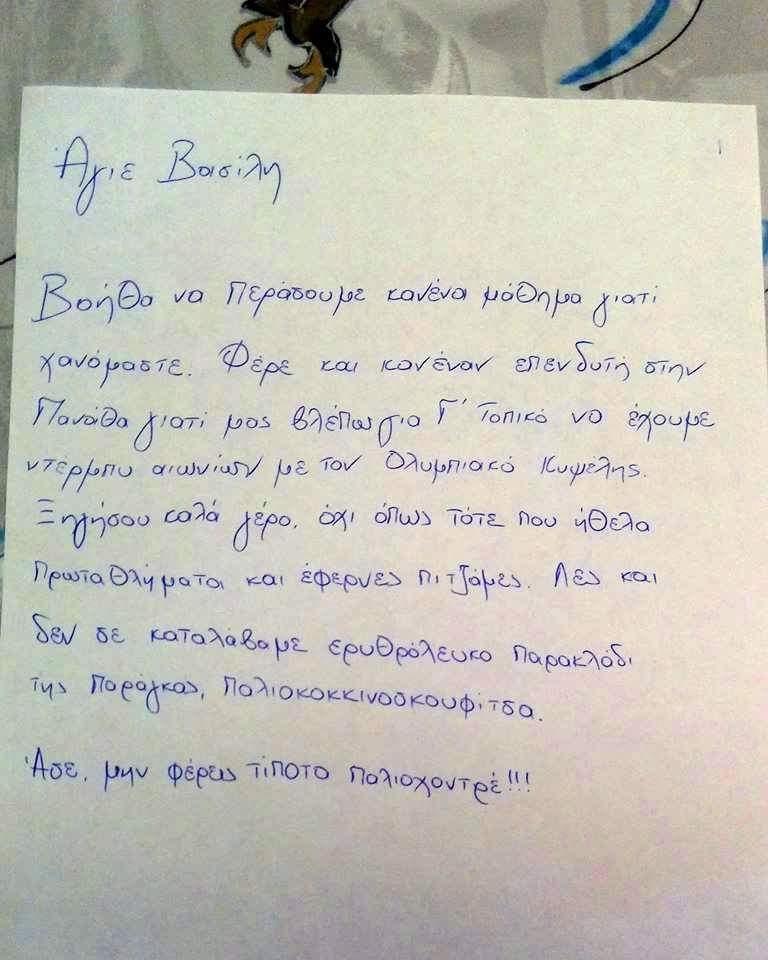 Άγιε Βασίλη
Βοήθα να περάσουμε κανένα μάθημα γιατί
χανόμαστε. Φέρε και κανέναν επενδυτή στην
Πανάθα γιατί μας βλέπω για Γ' Τοπικό να έχουμε
ντερμπυ αιωνίων με τον Ολυμπιακό Κυψέλης.
Ξηγήσου καλά γέρο, όχι όπως τότε που ήθελα
πρωταθλήματα και έφερνες πιτζάμες. Λες και
δεν σε καταλάβαμε ερυθρόλευκο παρακλάδι
της παράγκας, παλιοκοκκινοσκουφίτσα.
Άσε, μην φέρεις τίποτα παλιοχοντρέ!!!